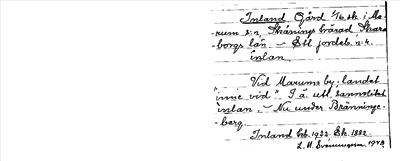 Inland Gård 1/16 sk. i Ma-
rum s:n, Skånings härad Skara
borgs län. - Etl. jordeb. n:r.
inlan.
Vid Marums by, landet
"inne vid". I ä ett sannolikt
inlan. - Nu under Bränninge-
berg.
Inland beb. 1932. Ek. 1882.
L. M. Svänungson. 1948